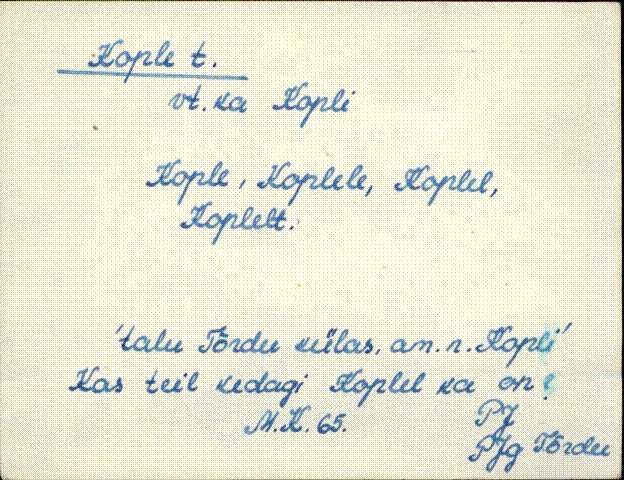 Kople t.
vt. ka Kopli
Kople, Koplele, Koplel,
Koplelt.
'talu Tõrdu külas, am. n. Kopli'
Kas teil kedagi Koplel ka on?
M.K. 65.
PJ
PJg Tõrdu